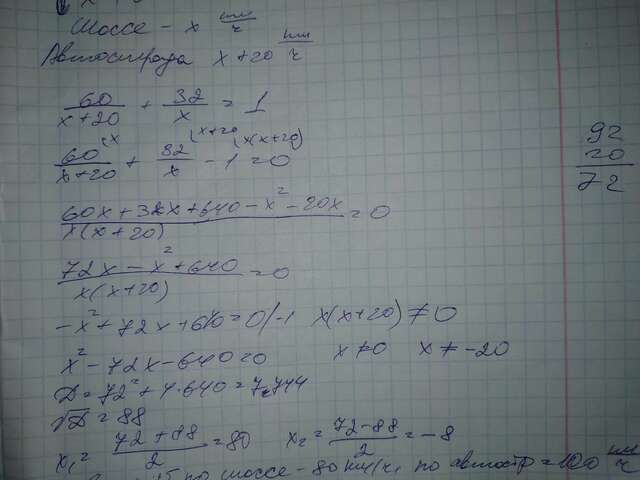 Шоссе - x км/ч
Автострада x+20 км/ч
60/(x+20) + 32/x = 1
60/(x+20) + 32/x - 1 = 0
(60x+32x+640-x²-20x)/(x(x+20)) = 0
(72x-x²+640)/(x(x+20)) = 0
-x²+72x+640=0/-1 x(x+20)≠0
x²-72x-640=0 x≠0 x≠-20
D=72²+4·640=7744
√D=88
x₁=(72+88)/2=80 x₂=(72-88)/2=-8
по шоссе-80 км/ч, по автостр=100 км/ч
92
20
72